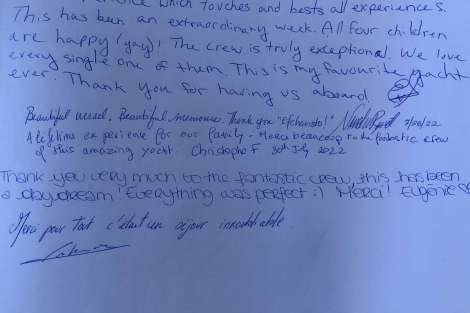 which touches and bests all experiences.
This has been an extraordinary week. All four children
are happy (yay)! The crew is truly exceptional. We love
every single one of them. This is my favourite yacht
ever. Thank you for having us aboard.
Beautiful vessel, Beautiful memories. Thank you "Efcharisto!"
A lifetime experience for our family - Merci beaucoup to the fantastic crew
of this amazing yacht. Christophe F 30th July 2022
Thank you very much to the fantastic crew, this has been
a daydream! Everything was perfect :) Merci! Eugénie
Merci pour tout c'était un séjour inoubliable.